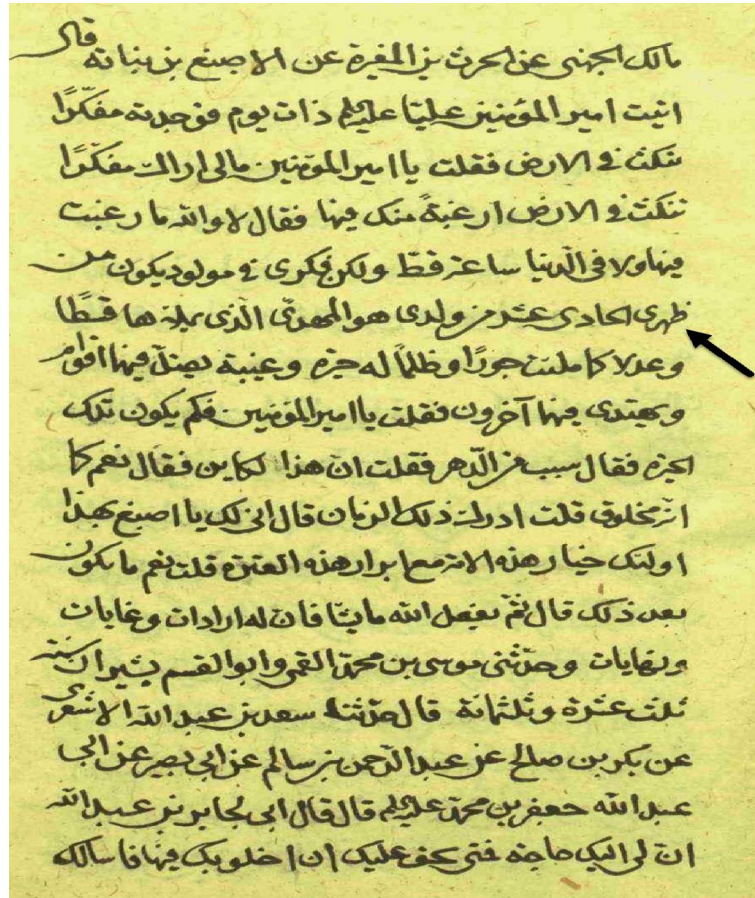 مالك الجهنى عن الحرث بن المغيرة عن الاصبغ بن نباتة قال
اتيت امير المؤمنين عليّا عليه‌السلم ذات يوم فوجدته مفكّرًا
ينكت فى الارض فقلت يا امير المؤمنين مالى اراك مفكّرًا
تنكت فى الارض ارغبةً منك فيها فقال لا والله ما رغبت
فيها ولا فى الدّنيا ساعة قطّ ولكن فكرى فى مولود يكون من
ظهرى الحادى عشر من ولدى هو المهدىّ الّذى يملأها قسطًا
وعدلا كما ملئت جورًا وظلمًا له حيرة وغيبة يضلّ فيها اقوام
ويهتدى فيها آخرون فقلت يا امير المؤمنين فكم يكون تلك
الحيرة فقال سبت من الدّهر فقلت ان هذا لكاين فقال نعم كما
انّه مخلوق قلت ادرك ذلك الزمان قال انى لك يا اصبغ بهذا
اولئك خيار هذه الامة مع ابرار هذه العترة قلت ثم ما يكون
بعد ذلك قال ثمّ يفعل الله ما يشا فان له ارادات وغايات
ونهايات وحدّثنى موسى بن محمّد القمى وابو القسم بشيراز سنة
ثلث عشرة وثلثمائة قال حدّثنا سعد بن عبد الله الاشعرى
عن بكر بن صالح عن عبد الرّحمن بن سالم عن ابى بصير عن ابى
عبد الله جعفر بن محمّد عليه‌السلم قال قال ابى لجابر بن عبد الله
انّ لى اليك حاجة فمتى يخف عليك ان اخلو بك فيها فاسالك